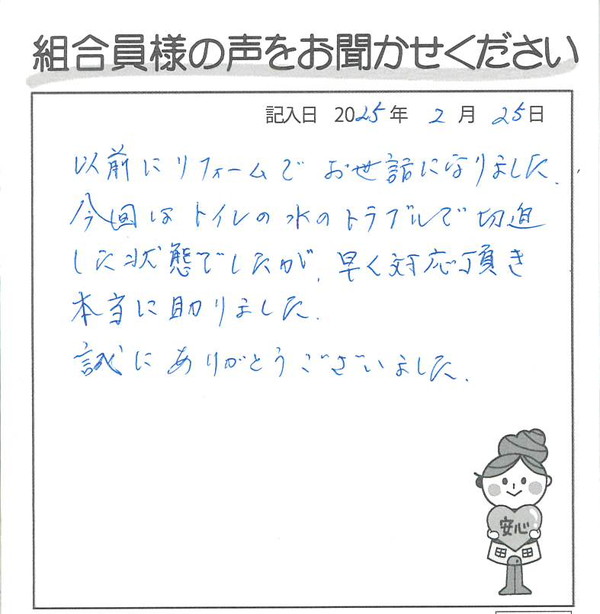 組合員様の声をお聞かせください
記入日 2025年 2月 25日
以前にリフォームでお世話になりました.
今回はトイレの水のトラブルで切迫
した状態でしたが、早く対応頂き
本当に助りました.
誠にありがとうございました.
安心